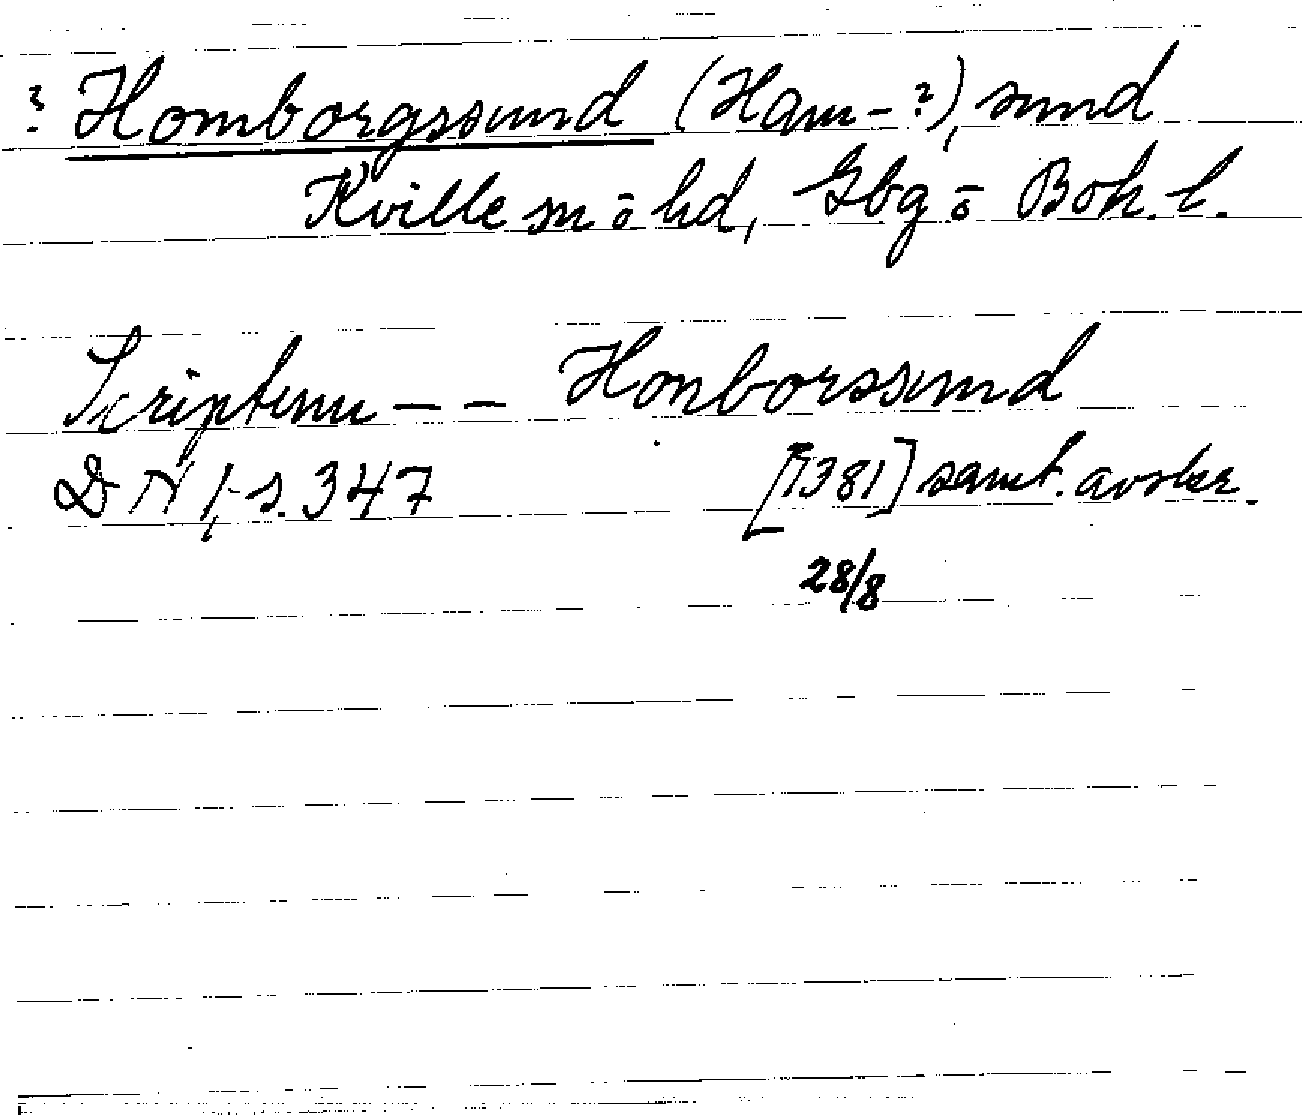 ? Homborgssund (Ham-?), sund
Kville sn o hd, Gbg o Boh. l.
Scriptum - - Honborssund
DN 1, s. 347 [1381] samt. avskr.
28/8